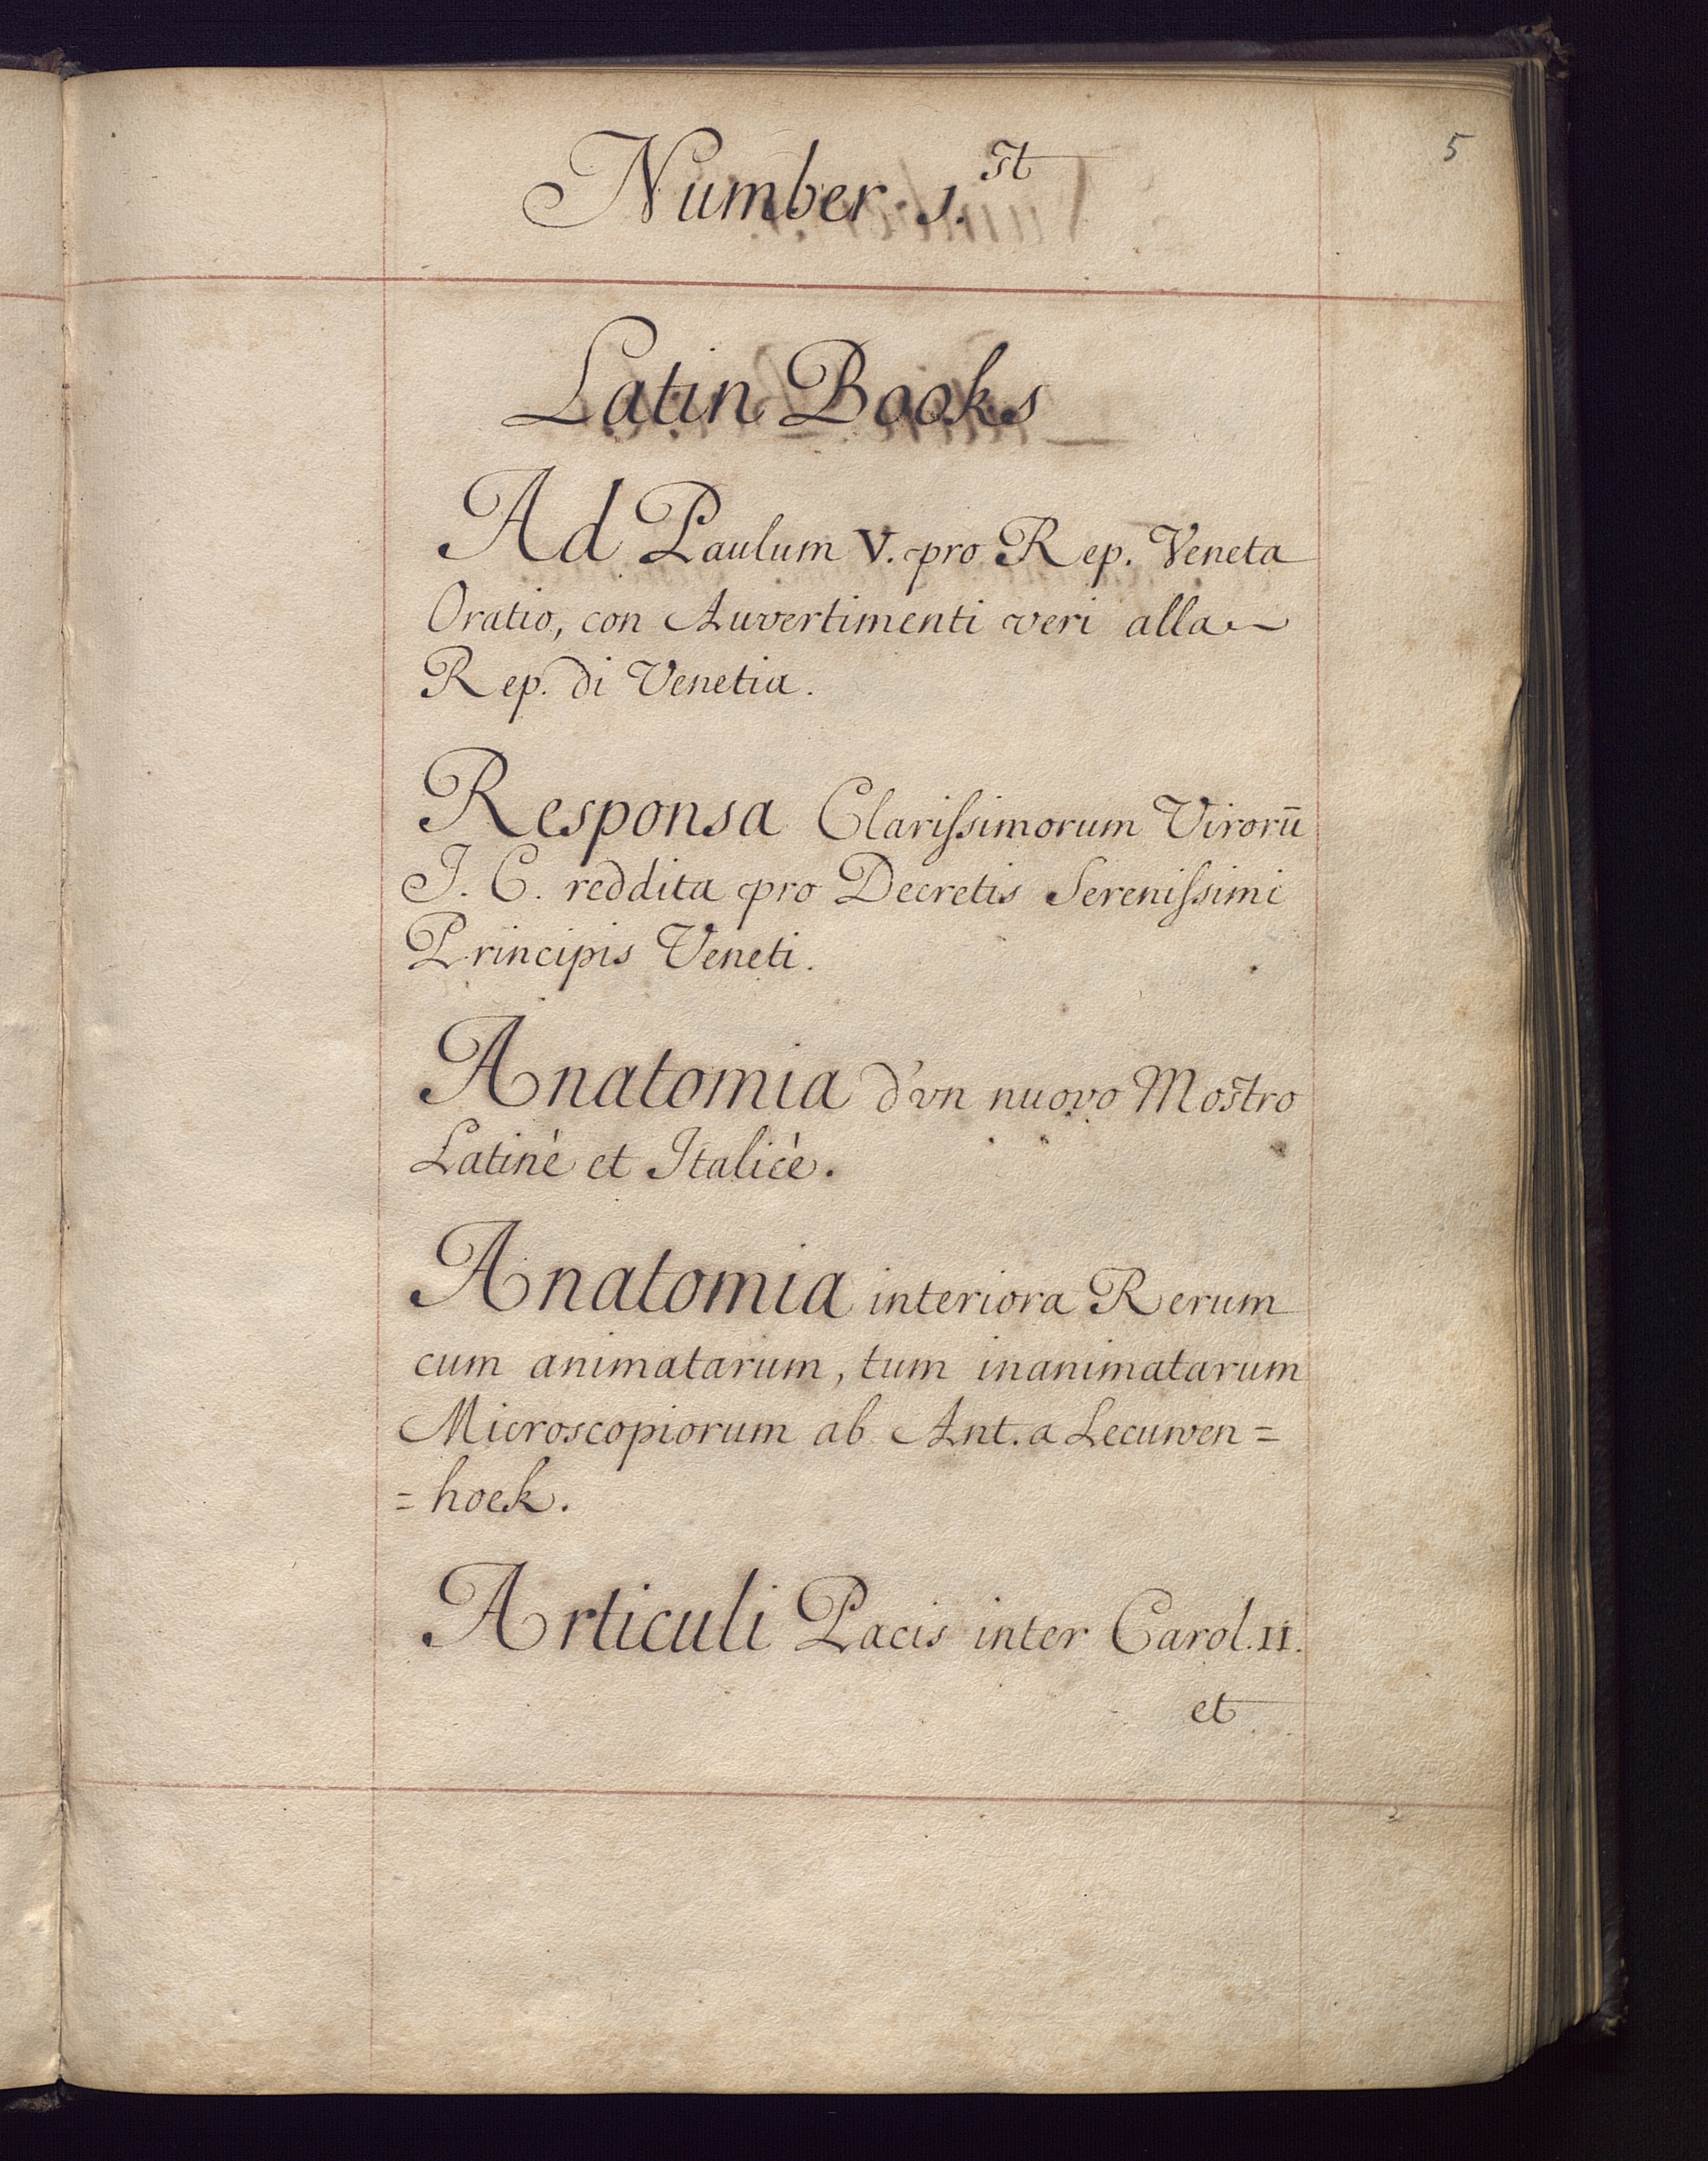 5
Number. 1.st
Latin Books
Ad Paulum V. pro Rep. Veneta
Oratio, con Auvertimenti veri alla
Rep. di Venetia.
Responsa Clarissimorum Virorū
J. C. reddita pro Decretis Serenissimi
Principis Veneti.
Anatomia d'vn nuovo Mostro
Latinè et Italicè.
Anatomia interiora Rerum
cum animatarum, tum inanimatarum
Microscopiorum ab Ant. a Lecuwen=
=hoek.
Articuli Pacis inter Carol. II.
et